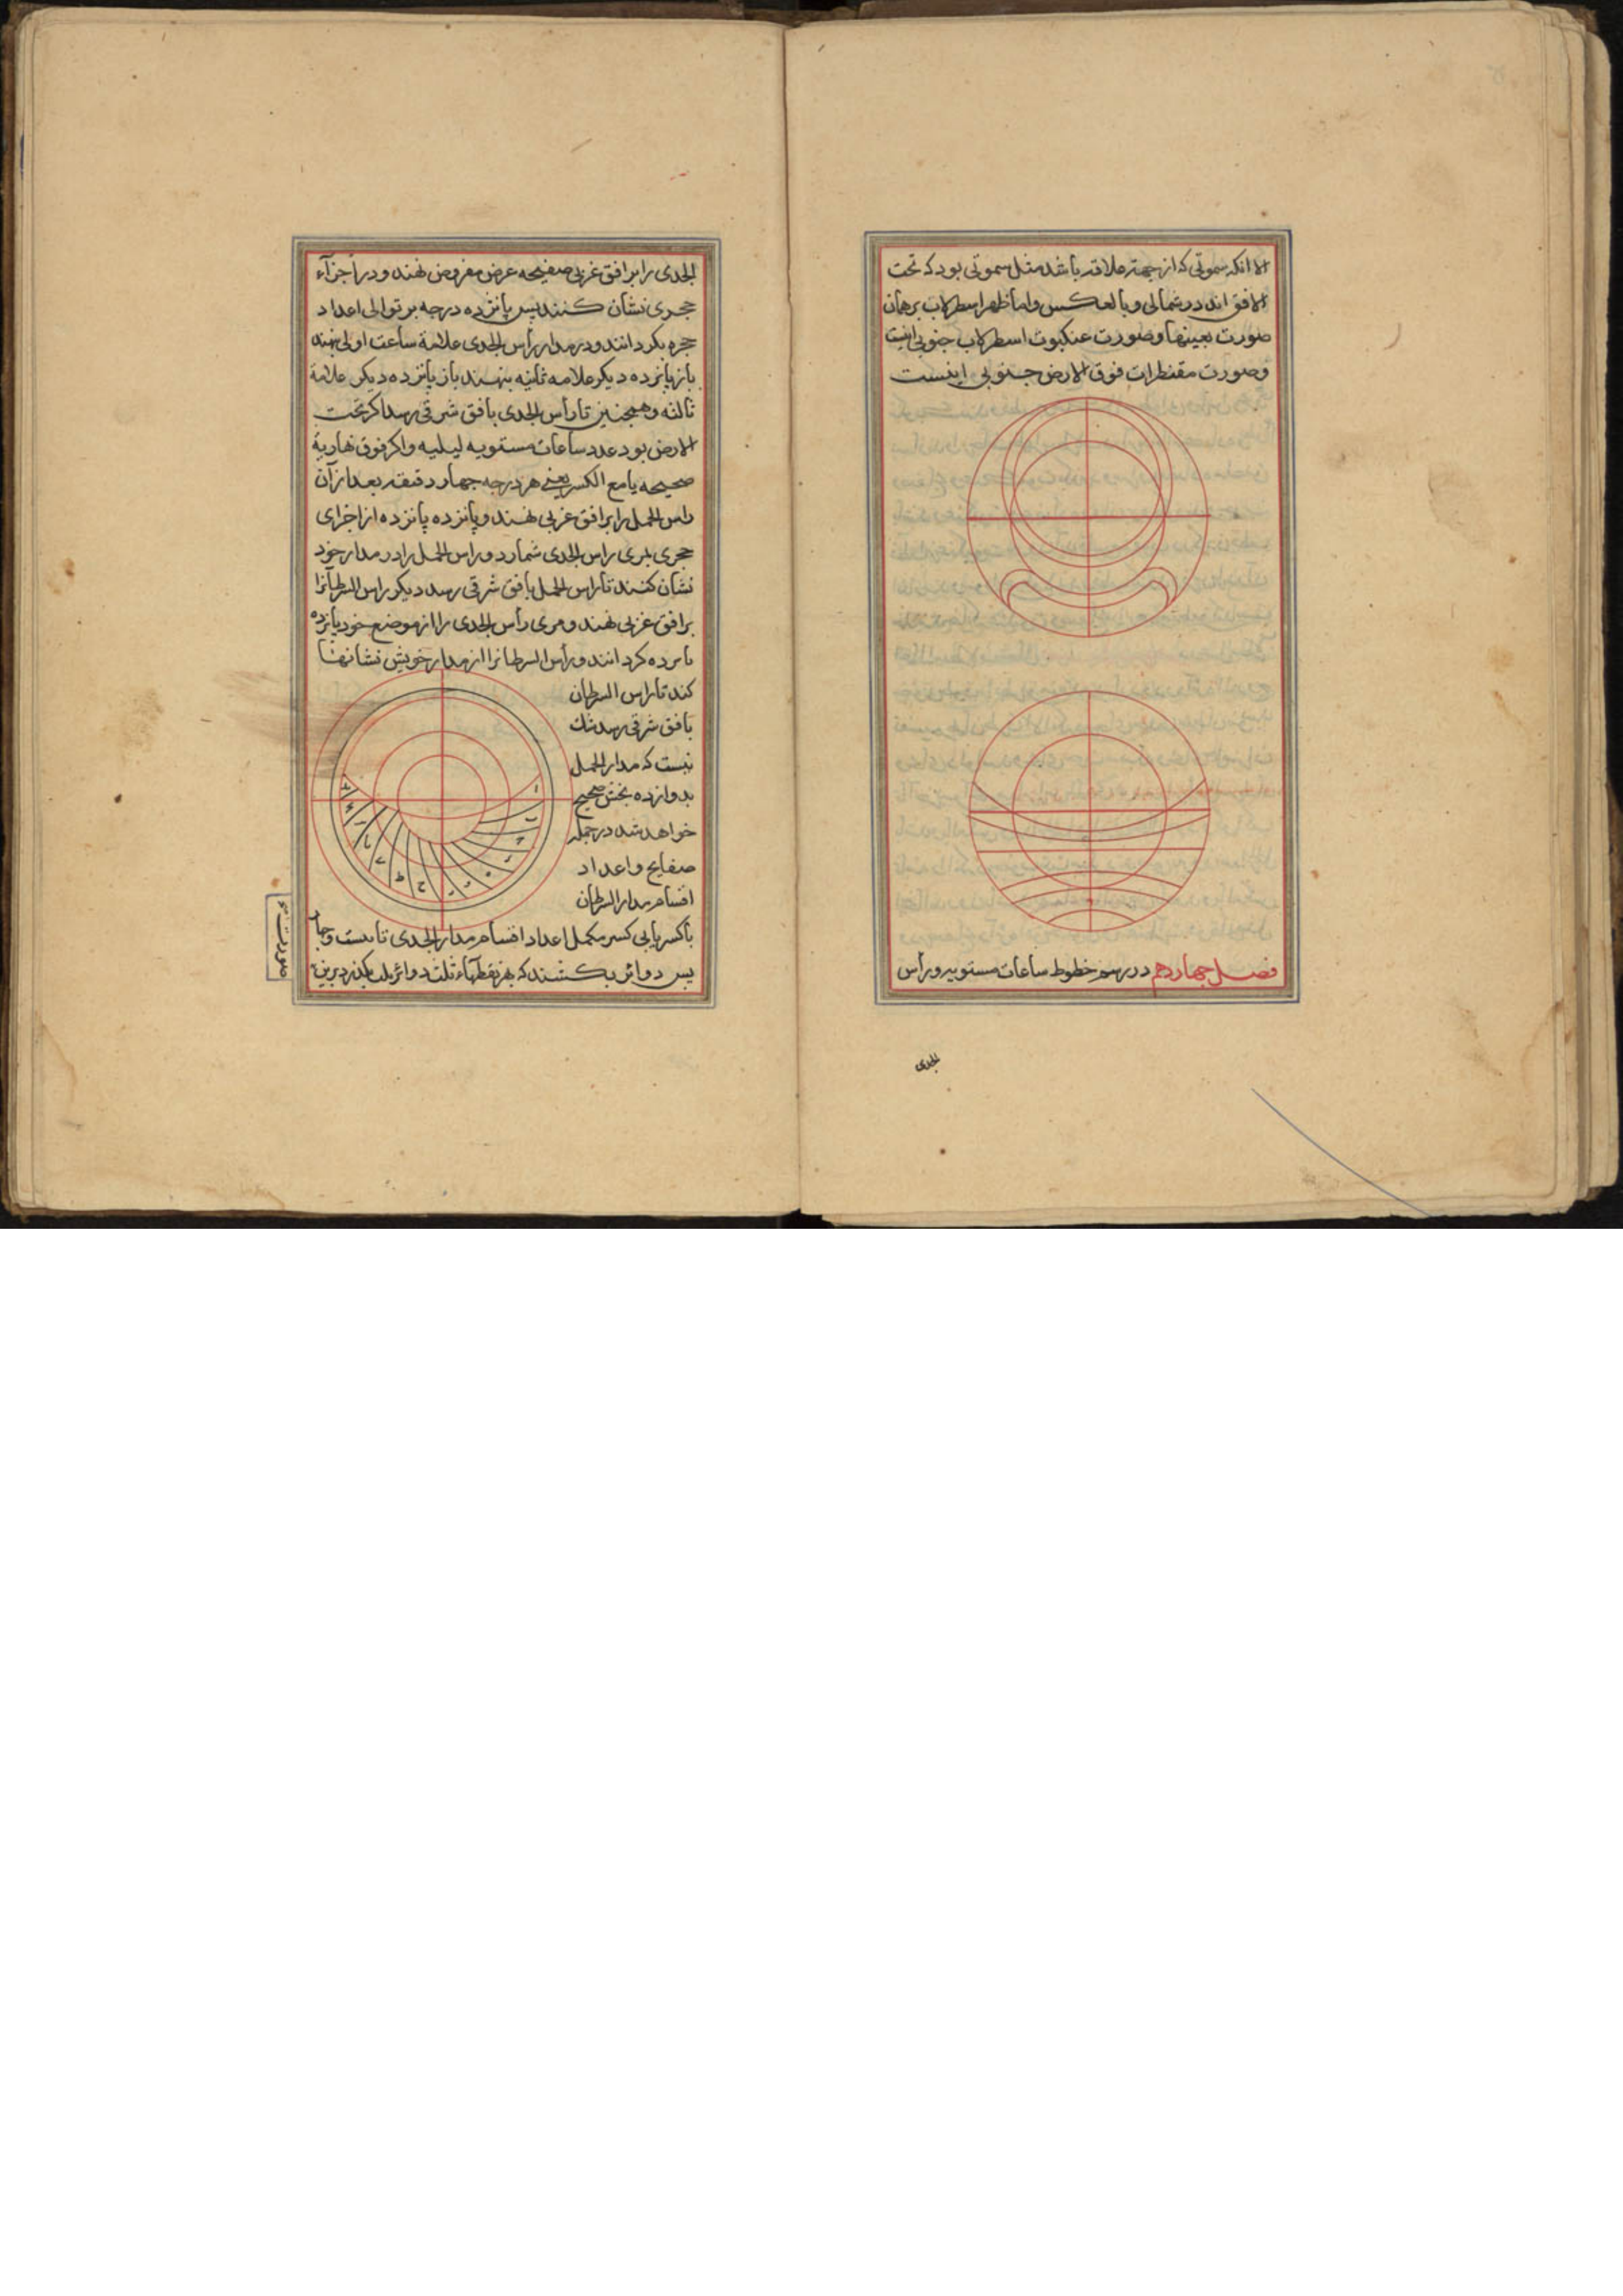 الا انکه سموتی که از جهة علاقه باشد مثل سموتی بود که تحت
الافق اند در شمالی و بالعکس و اما ظهر اسطرلاب بر همان
صورت بعینها و صورت عنکبوت اسطرلاب جنوبی اینست
و صورت مقنطرات فوق الارض جنوبی اینست
فصل چهاردهم در رسم خطوط ساعات مستویه و رأس
الجدی
الجدی را بر افق غربی صفیحه عرض مفروض نهند و در اجزآء
حجری نشان کنند پس پانزده درجه بر توالی اعداد
حجره بکردانند و در مدار رأس الجدی علامة ساعت اولی نهند
باز پانزده دیکر علامه ثانیه بنهند باز پانزده دیکر علامة
ثالثه و همچنین تا رأس الجدی بافق شرقی رسد اکر تحت
الارض بود عدد ساعات مستویه لیلیه و اکر فوق نهاریة
صحیحه یا مع الکسر یعنی هر درجه چهار دقیقه بعد از آن
راس الحمل را بر افق غربی نهند و پانزده پانزده از اجزای
حجری بمری راس الجدی شمارد و راس الحمل را در مدار خود
نشان کنند تا راس الحمل بافق شرقی رسد دیکر راس السرطانرا
بر افق غربی نهند و مری رأس الجدی را از موضع خود پانزده
پانزده کردانند و رأس السرطانرا از مدار خویش نشانها
کند تا راس السرطان
بافق شرقی رسد شك
نیست که مدار الحمل
بدوازده بخش صحیح
خواهد شد در جمله
صفایح و اعداد
اقسام مدار السرطان
با کسر یا بی کسر مکمل اعداد اقسام مدار الجدی تا بیست و چهار
پس دوائر بکشند که بهر نقطهاء ثلث دوائر بکذرد برین
صورت